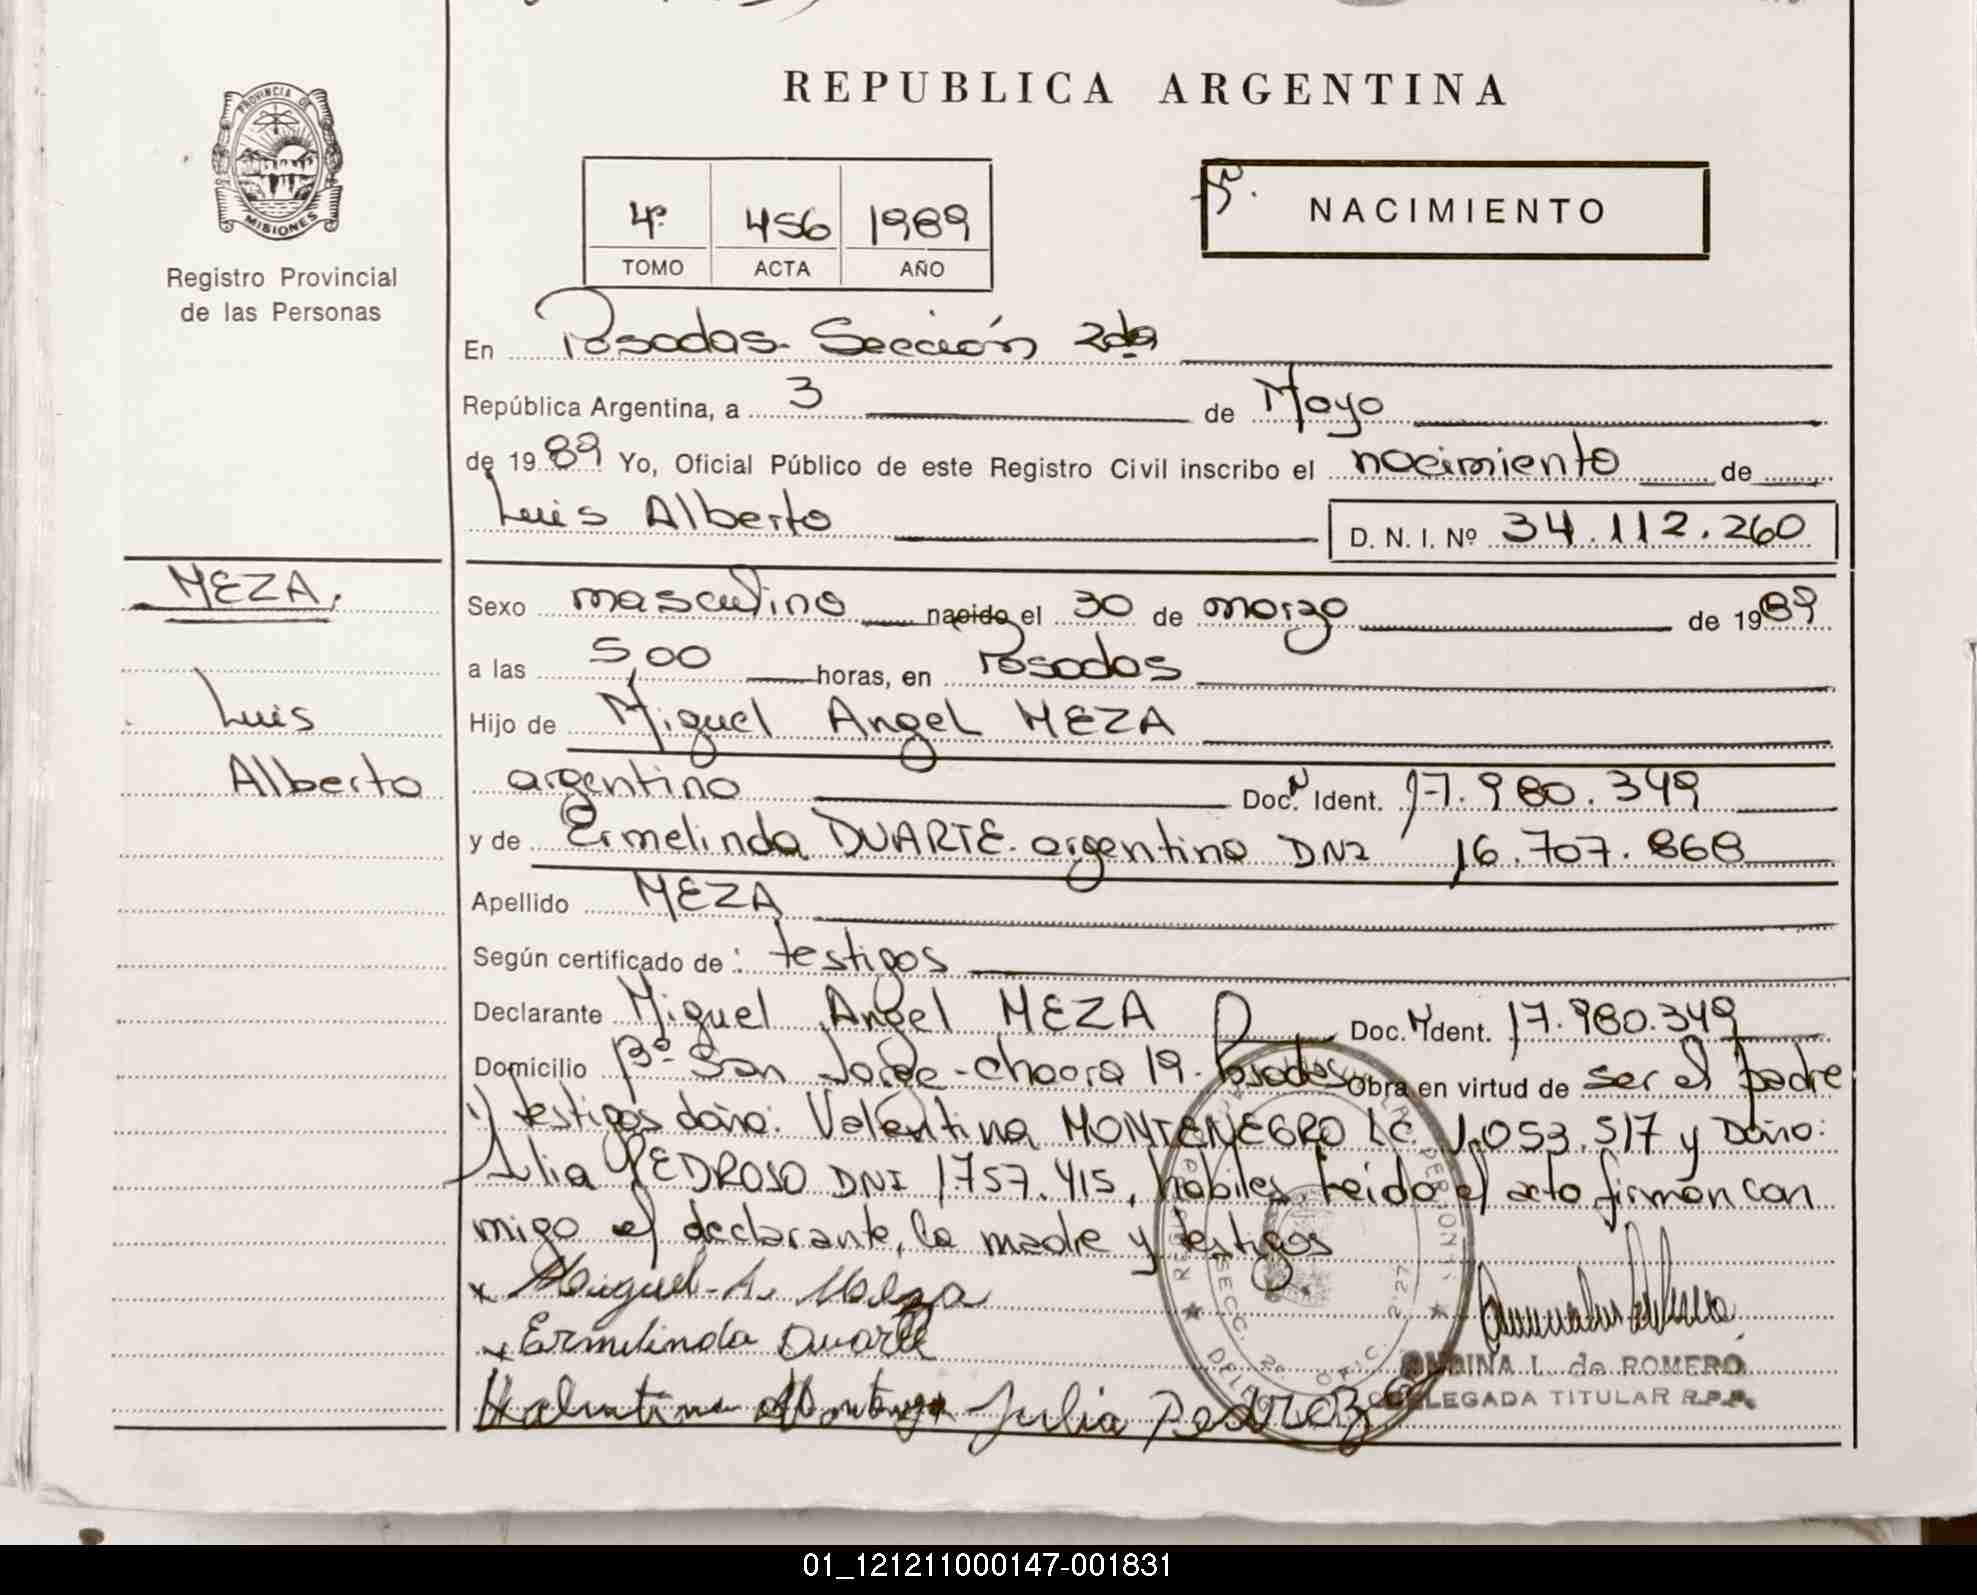 REPUBLICA ARGENTINA
PROVINCIA DE
MISIONES
Registro Provincial
de las Personas
4º 456 1989
TOMO ACTA AÑO
NACIMIENTO
En Posadas. Sección 2da
República Argentina, a 3 de Mayo
de 1989 Yo, Oficial Público de este Registro Civil inscribo el nacimiento de
Luis Alberto D. N. I. Nº 34.112.260
MEZA.
Luis
Alberto
Sexo masculino nacido el 30 de marzo de 1989
a las 5,00 horas, en Posadas
Hijo de Miguel Angel MEZA
argentino Doc. Ident. 17.980.349
y de Ermelinda DUARTE. argentina DNI 16.707.868
Apellido MEZA
Según certificado de: testigos
Declarante Miguel Angel MEZA Doc. Ident. 17.980.349
Domicilio Bº San Jorge - chacra 19. Posadas Obra en virtud de ser el padre
testigos doña: Valentina MONTENEGRO LC. 1.053.517 y Doña:
Julia PEDROSO DNI 1757.415, hábiles. Leido el acto firman con
migo el declarante, la madre y testigos
x Miguel A. Meza
x Ermelinda Duarte
Valentina Julia Pedrozo
SECC. 2a OFIC. 2227
L. de ROMERO
DELEGADA TITULAR R.P.P.
01_121211000147-001831